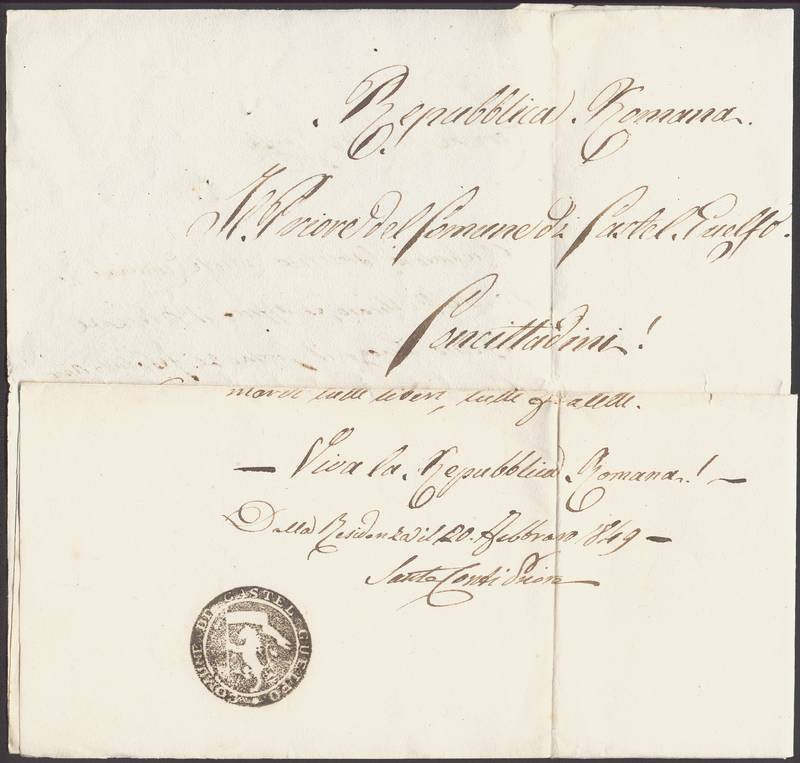 Repubblica Romana.
Il Priore del Comune di Castel Guelfo.
Concittadini!
tutti liberi, tutti fratelli.
— Viva la Repubblica Romana! —
Dalla Residenza il 20. Febbraro 1849 —
Conti Priore
COMUNE DI CASTEL GUELFO